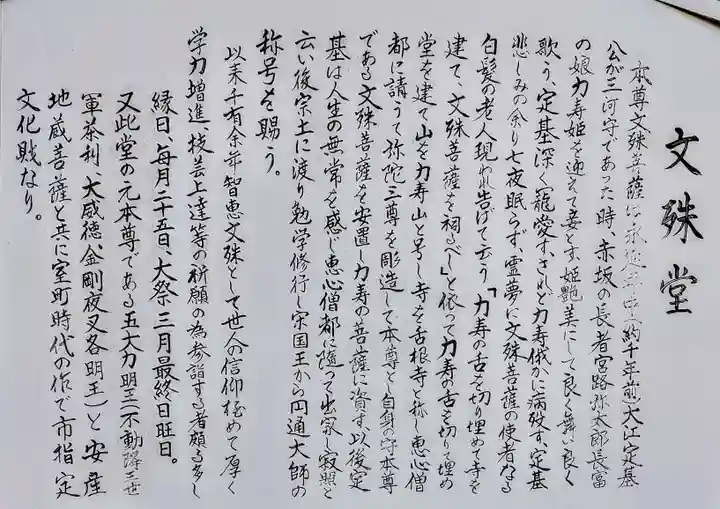 文殊堂
本尊文殊菩薩は永延年中(約千年前)大江定基
公が三河守であった時、赤坂の長者宮路弥太郎長富
の娘力寿姫を迎えて妾とす、姫艶美にして良く舞い良く
歌う、定基深く寵愛す、されど力寿俄かに病歿す、定基
悲しみの余り七夜眠らず、霊夢に文殊菩薩の使者なる
白髪の老人現われ告げて云う「力寿の舌を切り埋めて寺を
建て、文殊菩薩を祠るべし」と依って力寿の舌を切りて埋め
堂を建て山を力寿山と号し寺を舌根寺と称し恵心僧
都に請うて弥陀三尊を彫造して本尊とし自身の守本尊
である文殊菩薩を安置し力寿の菩薩に資す、以後定
基は人生の無常を感じ恵心僧都に随って出家し寂照と
云い後宗土に渡り勉学修行し宋国王から円通大師の
称号を賜う。
以来千有余年智恵文殊として世人の信仰極めて厚く
学力増進、技芸上達等の祈願の為参詣する者頗る多し
縁日、毎月二十五日、大祭三月最終日旺日。
又此堂の元本尊である五大力明王(不動降三世
軍荼利、大威徳、金剛夜叉各明王)と安産
地蔵菩薩と共に室町時代の作で市指定
文化賎なり。